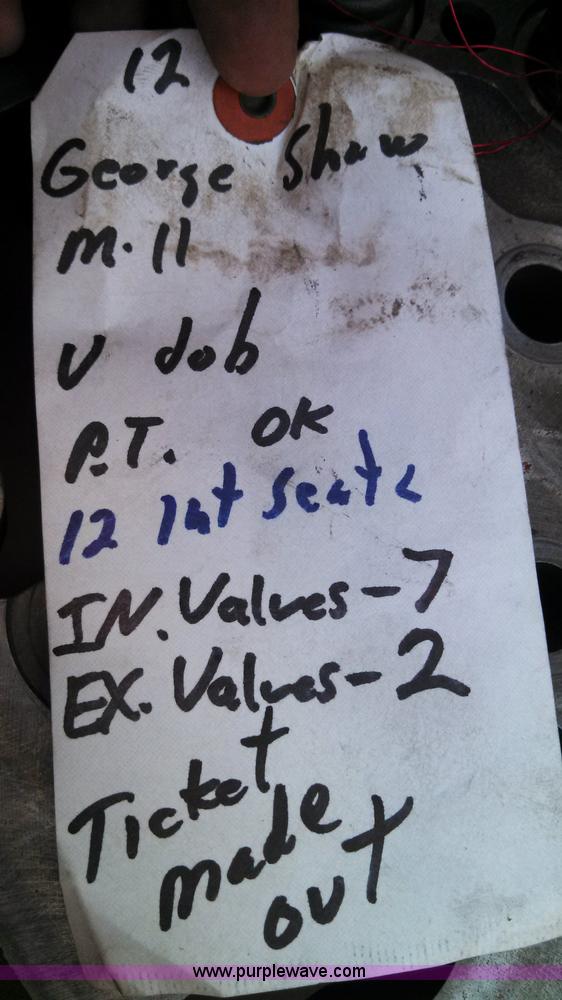 12
George Shaw
M-11
V job
P.T. OK
12 Int Seats
IN. Valves-7
EX. Valves-2
Ticket
made
out
www.purplewave.com